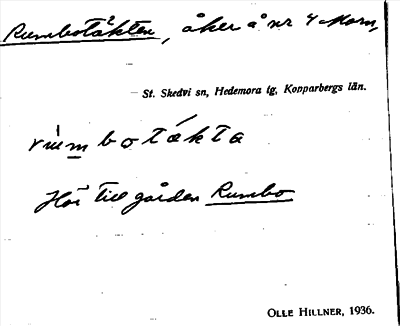 Rumbotäkten, åker å nr 4 Morn,
St. Skedvi sn, Hedemora tg, Kopparbergs län.
rùmbotákta
Hör till gården Rumbo
OLLE HILLNER, 1936.